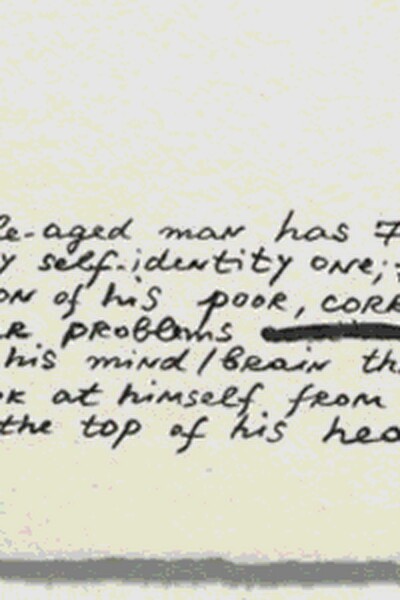 le-aged man has 7
y self-identity one;
on of his poor, corr
r problems
his mind/brain th
ok at himself from
the top of his hea